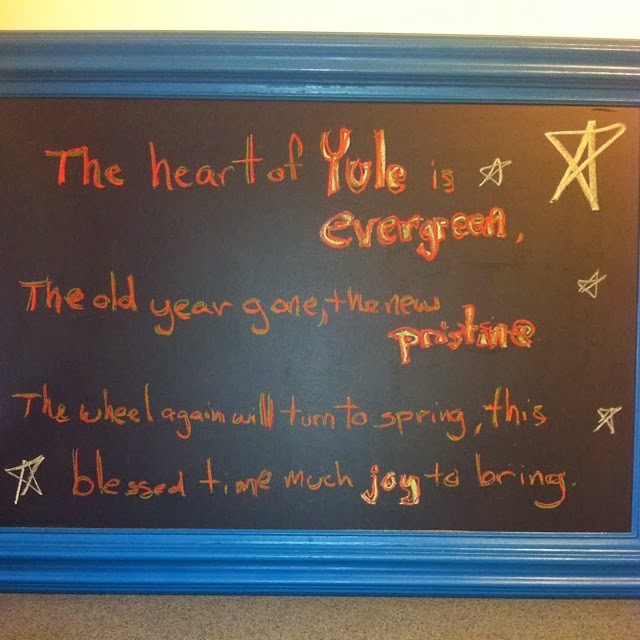 The heart of Yule is
evergreen,
The old year gone, the new
pristine
The wheel again will turn to spring, this
blessed time much joy to bring.